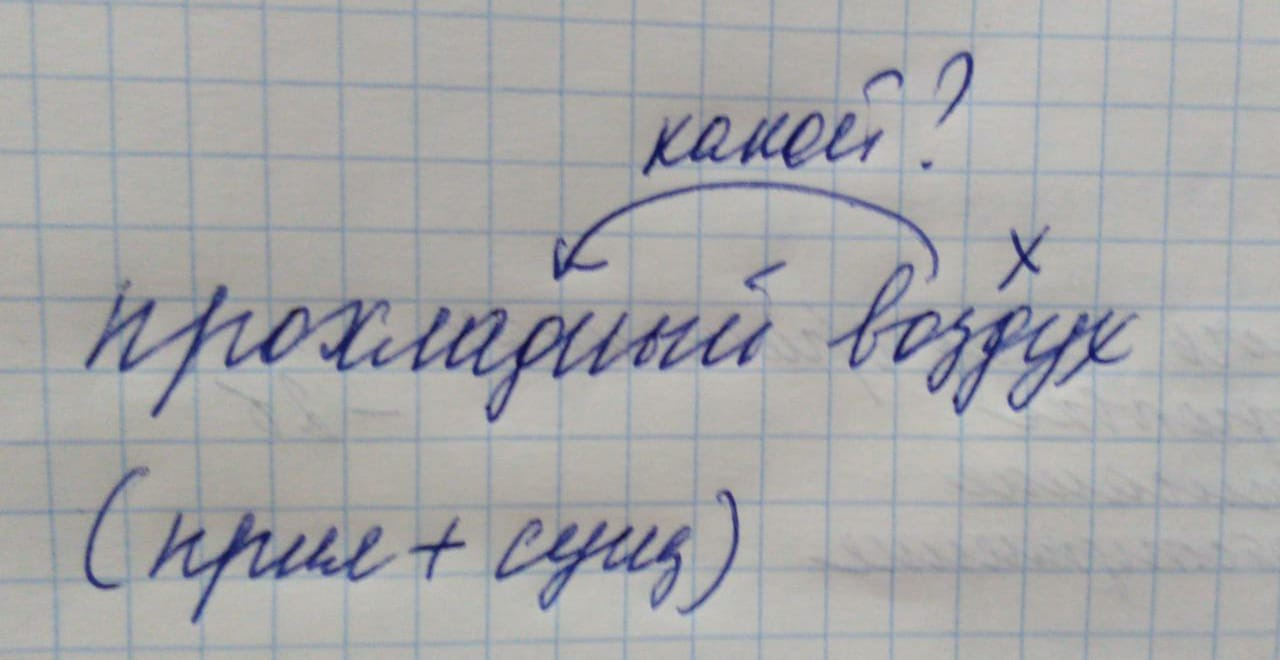 какой?
х
прохладный воздух
(прил + сущ)